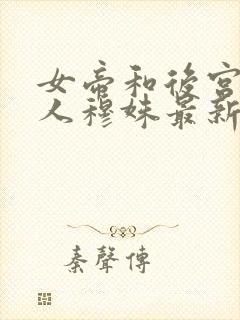 女帝和後宮
人穆妹最新
秦聲傳